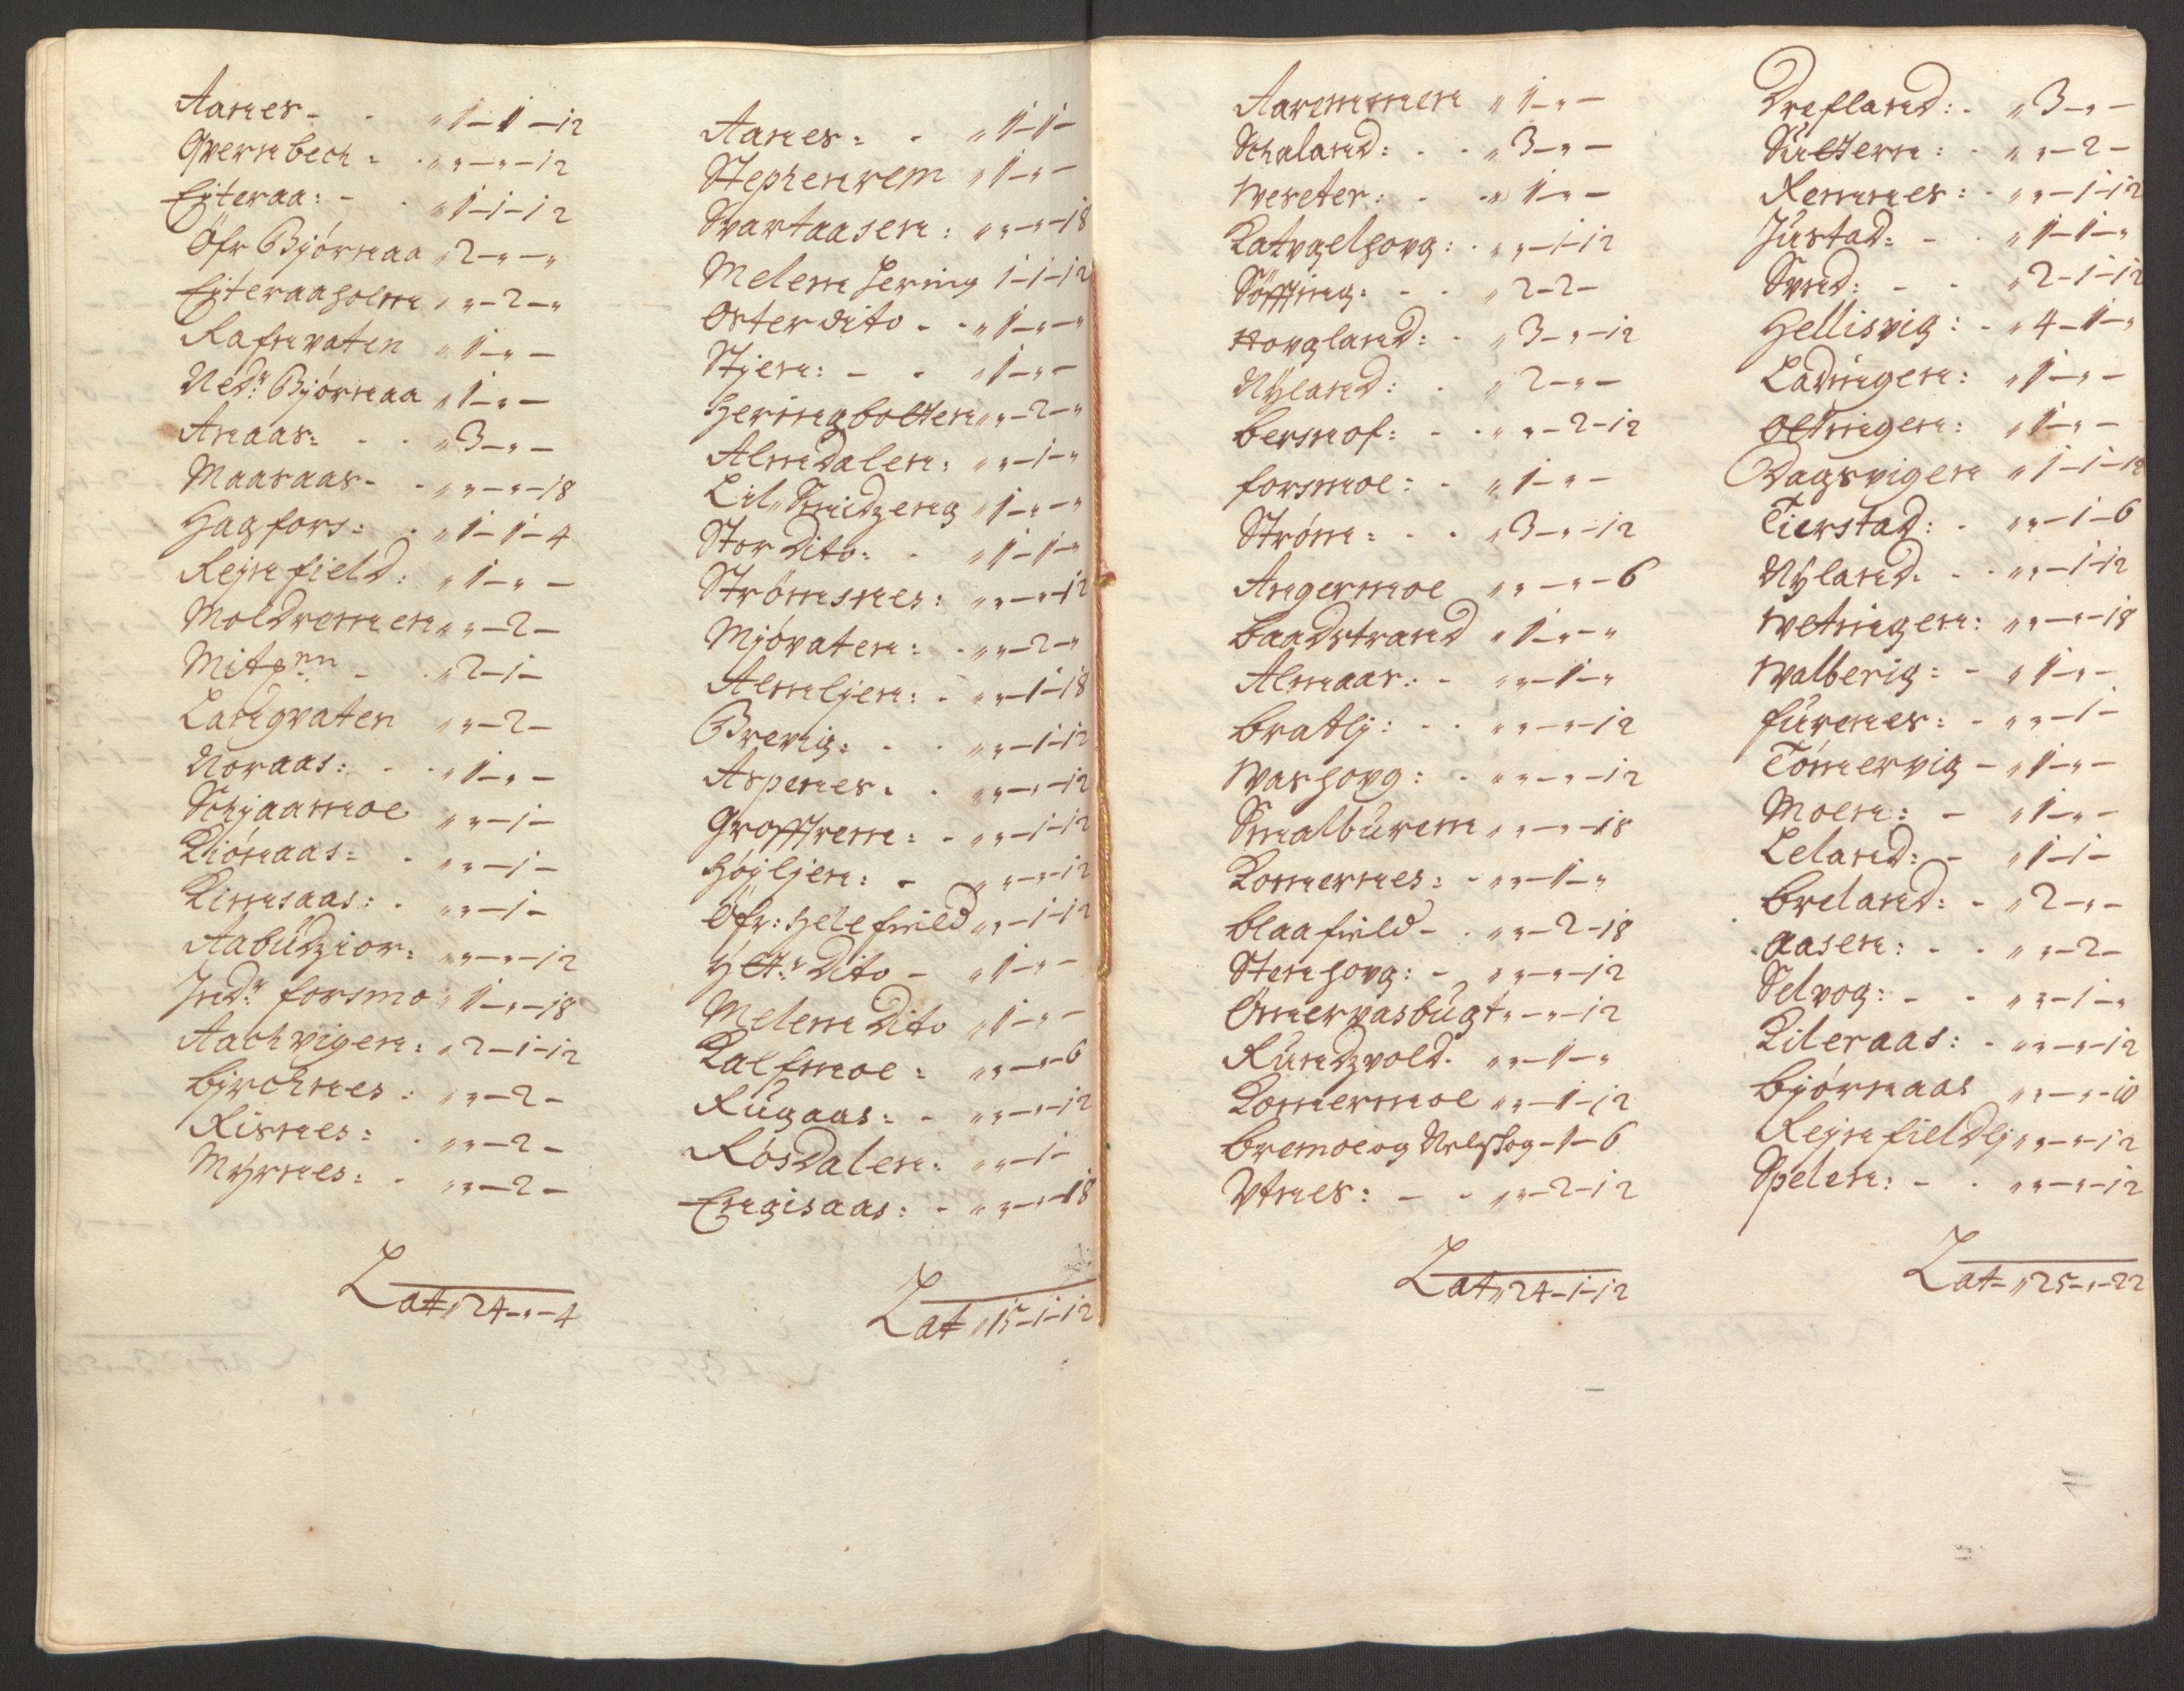 Aanes - - „ 1 - 1 - 12
Qvernbech = - „ „ - „ - 12
Eyteraa: - - „ 1 - 1 - 12
Öfr Bjórnaa „ 2 - „ - „
Eyteraaholm „ „ - 2 - „
Rafnvaten „ 1 - „ -
Nedr Bjórnaa „ 1 - „ -
Anaas: - - „ 3 - „ -
Maasaas - - „ „ - „ - 18
Hagfors: - „ 1 - 1 - 4
Rejnfield: „ 1 - „ -
Moldremen „ „ - 2 -
- „ 2 - 1 -
Langvaten „ „ - 2 -
Noraas: - - „ 1 - „ -
Schjaamoe „ „ - 1 -
Kiónaas: - „ „ - 1 -
Kimsaas: - „ „ - 1 -
Aabúdzior: „ „ - „ - 12
Indr forsmo „ 1 - „ - 18
Aachvigen: „ 2 - 1 - 12
Birchnes: „ „ - 2 -
Risnes: - „ „ - 2 -
Myrnes: - „ „ - 2 -
Lat „ 24 - „ - 4
Aanes: - „ 1 - 1 -
Stephenrem „ 1 - „ -
Svartaasen: „ „ - „ - 18
Melem Hering 1 - 1 - 12
Oster dito - - „ 1 - „ - „
Stjen: - - „ 1 - „ -
Heringbotten „ „ - 2 - „
Almdalen: „ „ - 1 - „
Lil Smidzeng „ 1 - „ - „
Stor dito: - „ 1 - 1 - „
Strómsnes: „ „ - „ - 12
Mjóvaten: - „ „ - 2 - „
Almljen: - „ „ - 1 - 18
Brevig: - - „ „ - 1 - 12
Aspenes: - „ „ - „ - 12
Grofftrem: - „ „ - 1 - 12
Hójljen: - „ „ - „ - 12
Öfr: Helefield „ „ - 1 - 12
Ytt:r Dito - „ 1 - „ -
Melem Dito „ 1 - „ -
Kalfmoe: „ „ - „ - 6
Rúgaas: - „ „ - „ - 12
Rósdalen: „ „ - 1 -
Engisaas: - „ „ - „ - 18
Lat „ 15 - 1 - 12
Aaremmen „ 1 - „ -
Schaland: - - „ 3 - „ -
Weseter: - - „ 1 - „ -
Katvgelhovg: - „ „ - 1 - 12
Söffting: - - „ 2 - 2 -
Hovgland: - „ 3 - „ - 12
Nÿland: - „ 2 - „ -
bersmof: - - „ „ - 2 - 12
forsmoe: - „ 1 - „ -
Stróm: - - „ 3 - „ - 12
Angermoe „ „ - „ - 6
baadstrand „ 1 - „ - „
Almaas: - „ „ - 1 - „
bratlj: - - „ „ - „ - 12
Washovg: - „ „ - „ - 12
Smalbúrem „ „ - „ - 18
Komernes: - „ „ - 1 - „
blaafield - - „ „ - 2 - 18
Stenhovg: - „ „ - „ - 12
Ömervasbúgt „ - „ - 12
Rúndzvold. „ „ - 1 - „
Komermoe „ „ - 1 - 12
bremoe og Nelshog - 1 - 6
Vtnes: - - „ „ - 2 - 12
Lat „ 24 - 1 - 12
Drefland: - „ 3 - „ -
Súltern: - „ „ - 2 -
Remmes: - „ „ - 1 - 12
Jústad: - - „ 1 - 1 - „
Sund: - - „ 2 - 1 - 12
Hellisvig: - „ 4 - 1 - „
Ladingen: „ 1 - „ -
Oltingen: „ 1 - „ -
Dagsvigen „ 1 - 1 - 12
Tierstad: - „ „ - 1 - 6
Nÿland: - - „ „ - 1 - 12
Wetningen: „ „ - „ - 18
Walberig: - „ 1 - „ -
fúrenes: - „ „ - 1 -
Tómervig - „ 1 - „ -
Moen: - „ 1 - „ -
Leland: - „ 1 - 1 -
breland: - „ 2 - „ -
aasen: - - „ „ - 2 -
Selvog: - - „ „ - 1 - „
Kileraas: - „ „ - „ - 12
bjórnaas „ „ - „ - 10
Rejnfieldlj „ „ - „ - 12
Spelen: - - „ „ - „ - 12
Lat = „ 25 - „ - 22